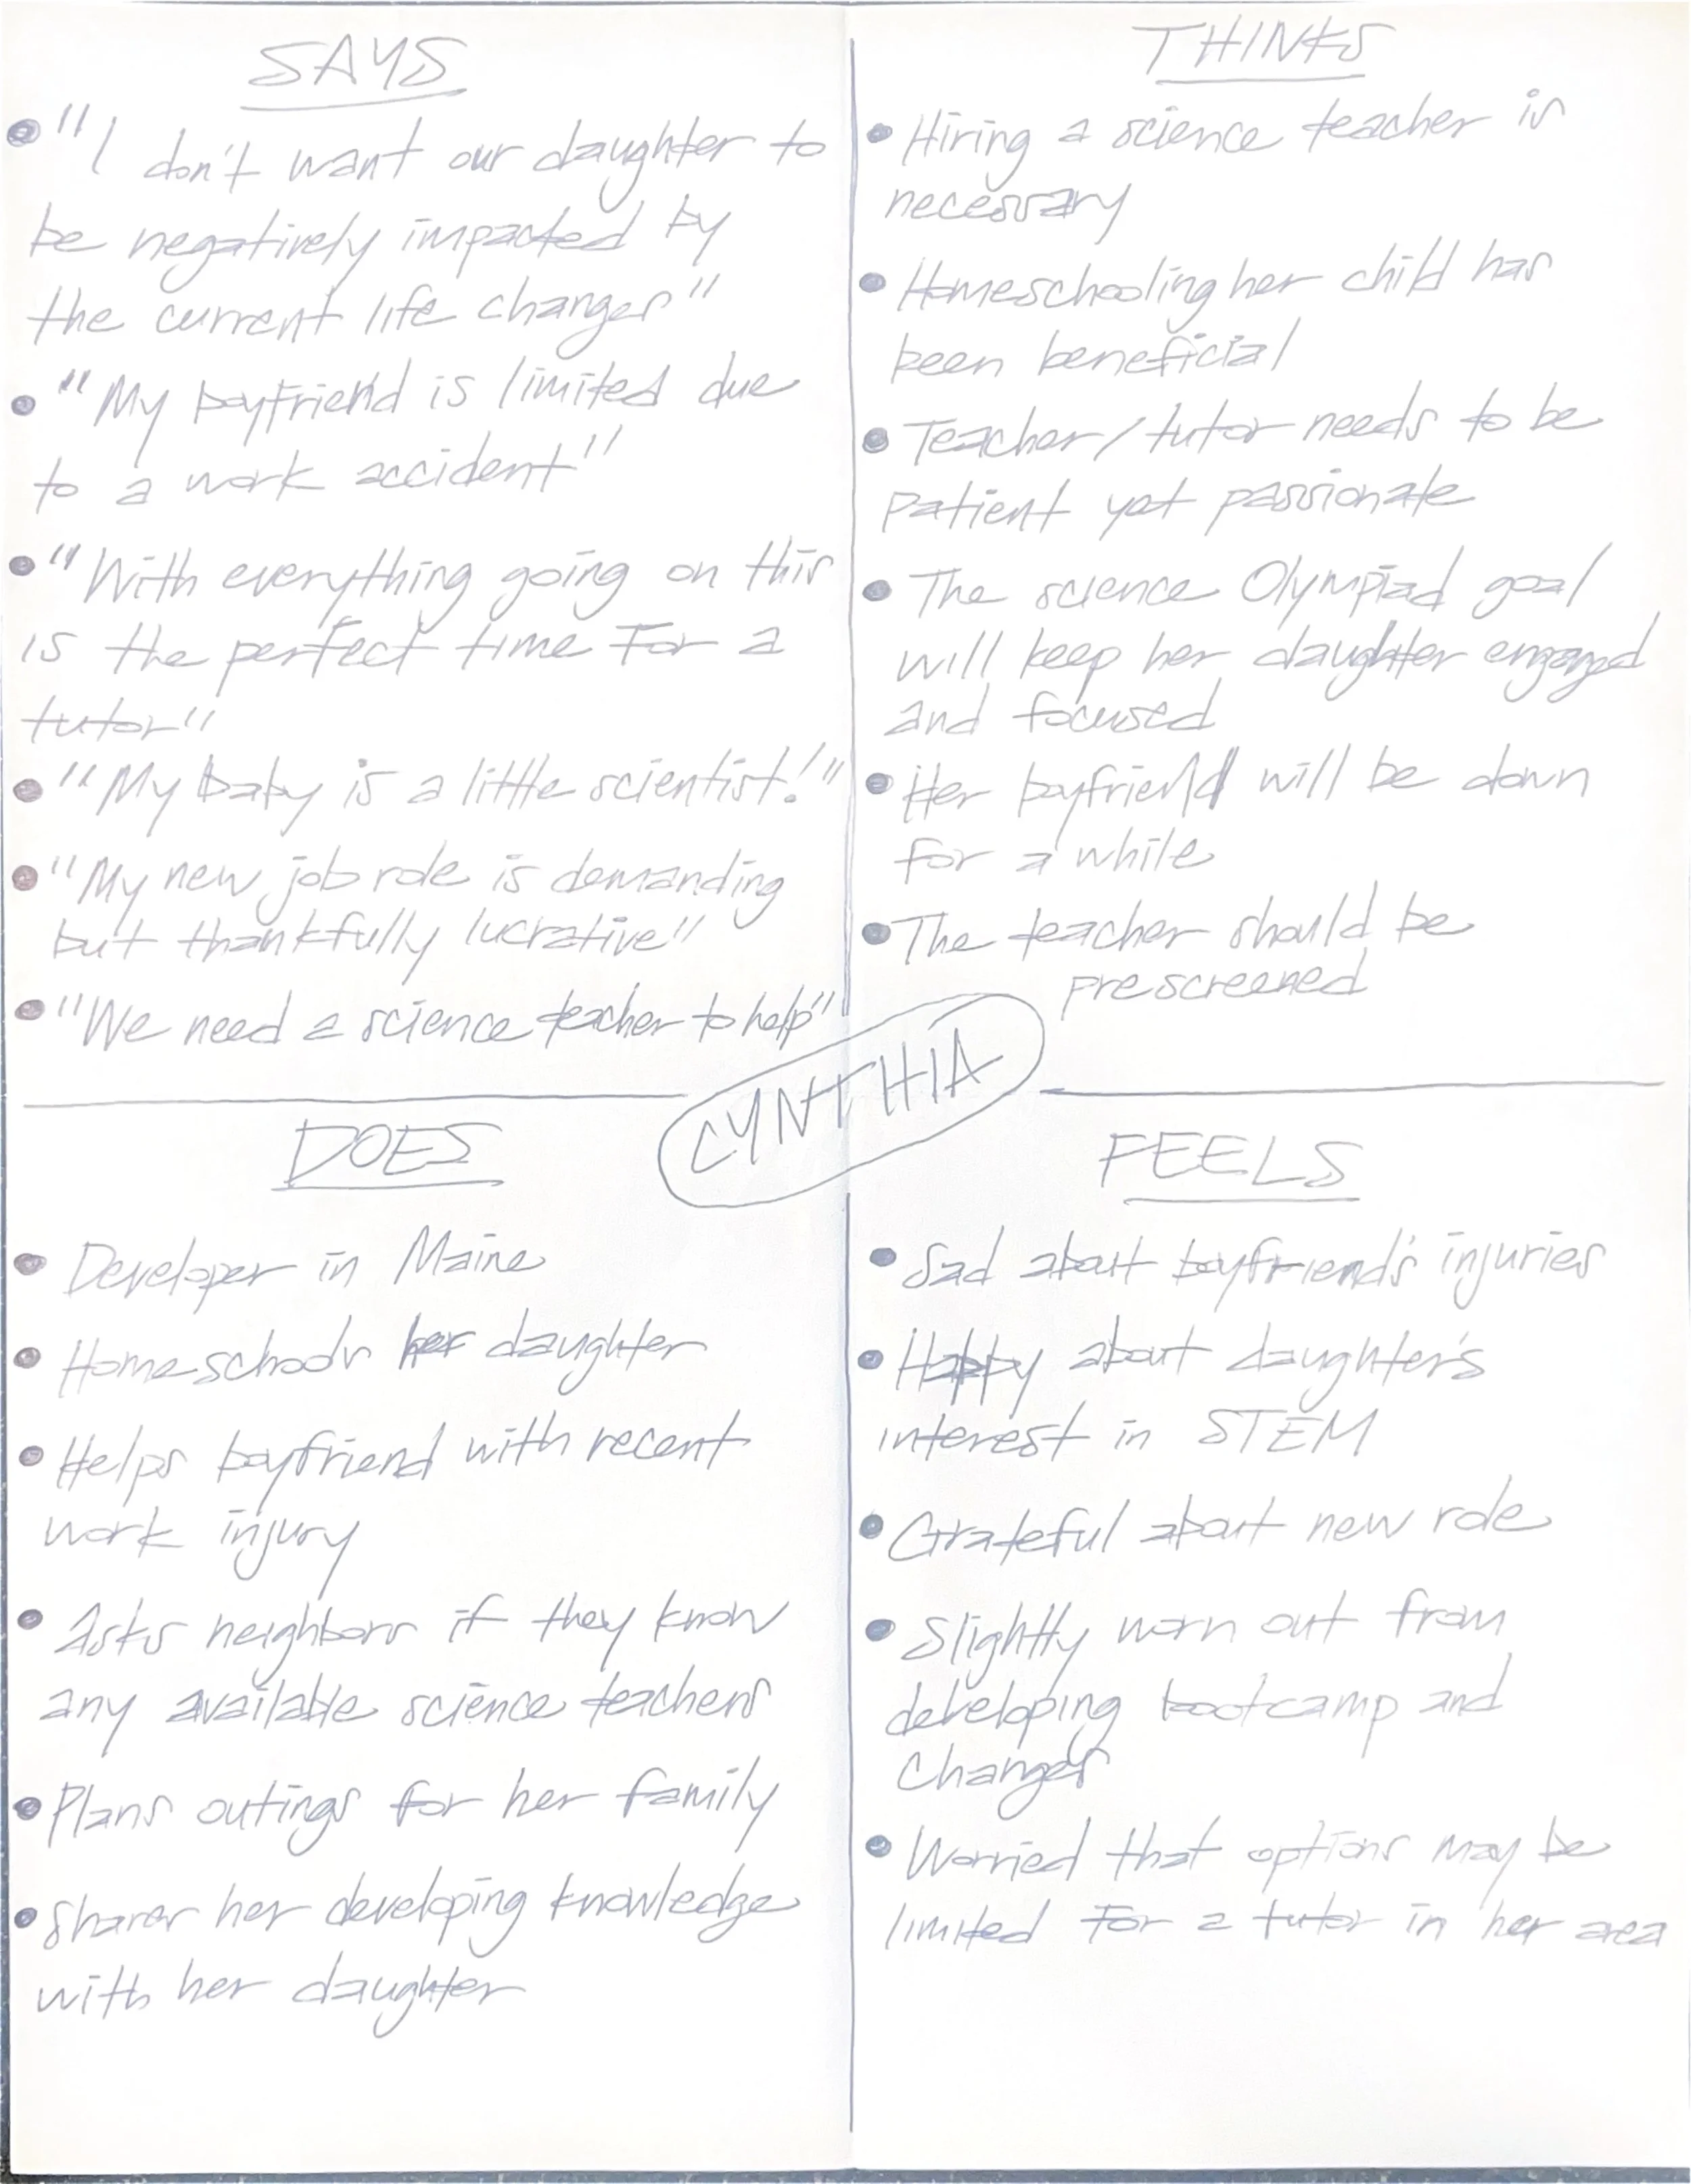 SAYS
• "I don't want our daughter to
be negatively impacted by
the current life changes"
• "My boyfriend is limited due
to a work accident"
• "With everything going on this
is the perfect time For a
tutor"
• "My baby is a little scientist!"
• "My new job role is demanding
but thankfully lucrative"
• "We need a science teacher to help"
THINKS
• Hiring a science teacher is
necessary
• Homeschooling her child has
been beneficial
• Teacher/tutor needs to be
patient yet passionate
• The science Olympiad goal
will keep her daughter engaged
and focused
• Her boyfriend will be down
for a while
• The teacher should be
prescreened
CYNTHIA
DOES
• Developer in Maine
• Homeschools her daughter
• Helps boyfriend with recent
work injury
• Asks neighbors if they know
any available science teachers
• Plans outings for her family
• Shares her developing knowledge
with her daughter
FEELS
• Sad about boyfriend's injuries
• Happy about daughter's
interest in STEM
• Grateful about new role
• Slightly worn out from
developing bootcamp and
changes
• Worried that options may be
limited For a tutor in her area